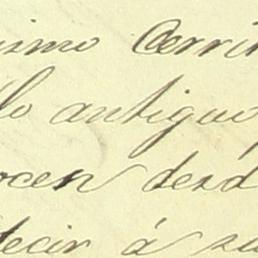 simo Cerri
lo antiguo
ocen desd
decir á su